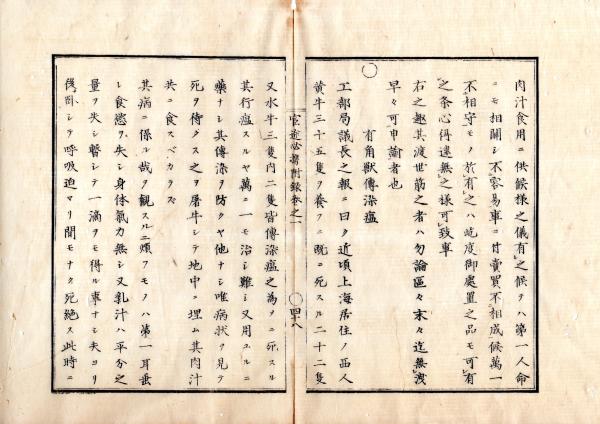 肉汁食用ニ供候様之儀有之候テハ第一人命
ニモ相關シ不容易事ニ付賣買不相成候萬一
不相守モノ於有之ハ屹度御處置之品モ可有
之条心得違無之様可致事
右之趣其渡世筋之者ハ勿論區々末々迄無洩
早々可申諭者也
○
有角獸傳染瘟
工部局議長之報ニ曰ク近頃上海居住ノ西人
黄牛三十五隻ヲ養フニ既ニ死スル二十二隻
官途必携附録巻之一
○四十八
又水牛三隻内二隻皆傳染瘟之為メニ死スル
其行瘟スルヤ萬ニ一モ治シ難シ又用ユルニ
藥ナシ其傳染ヲ防クヤ他ナシ唯病状ヲ見テ
死ヲ待タス之ヲ屠牛シテ地中ニ埋ム其肉汁
共ニ食スベカラズ
其病ニ係ル哉ヲ観スルニ煩フモノハ第一耳垂
シ食慾ヲ失シ身体氣力無シ又乳汁ハ平分之
量ヲ失シ暫シテ一滴ヲモ得ル事ナシ夫ヨリ
後卧シテ呼吸迫マリ間モナク死絶ス此時ニ